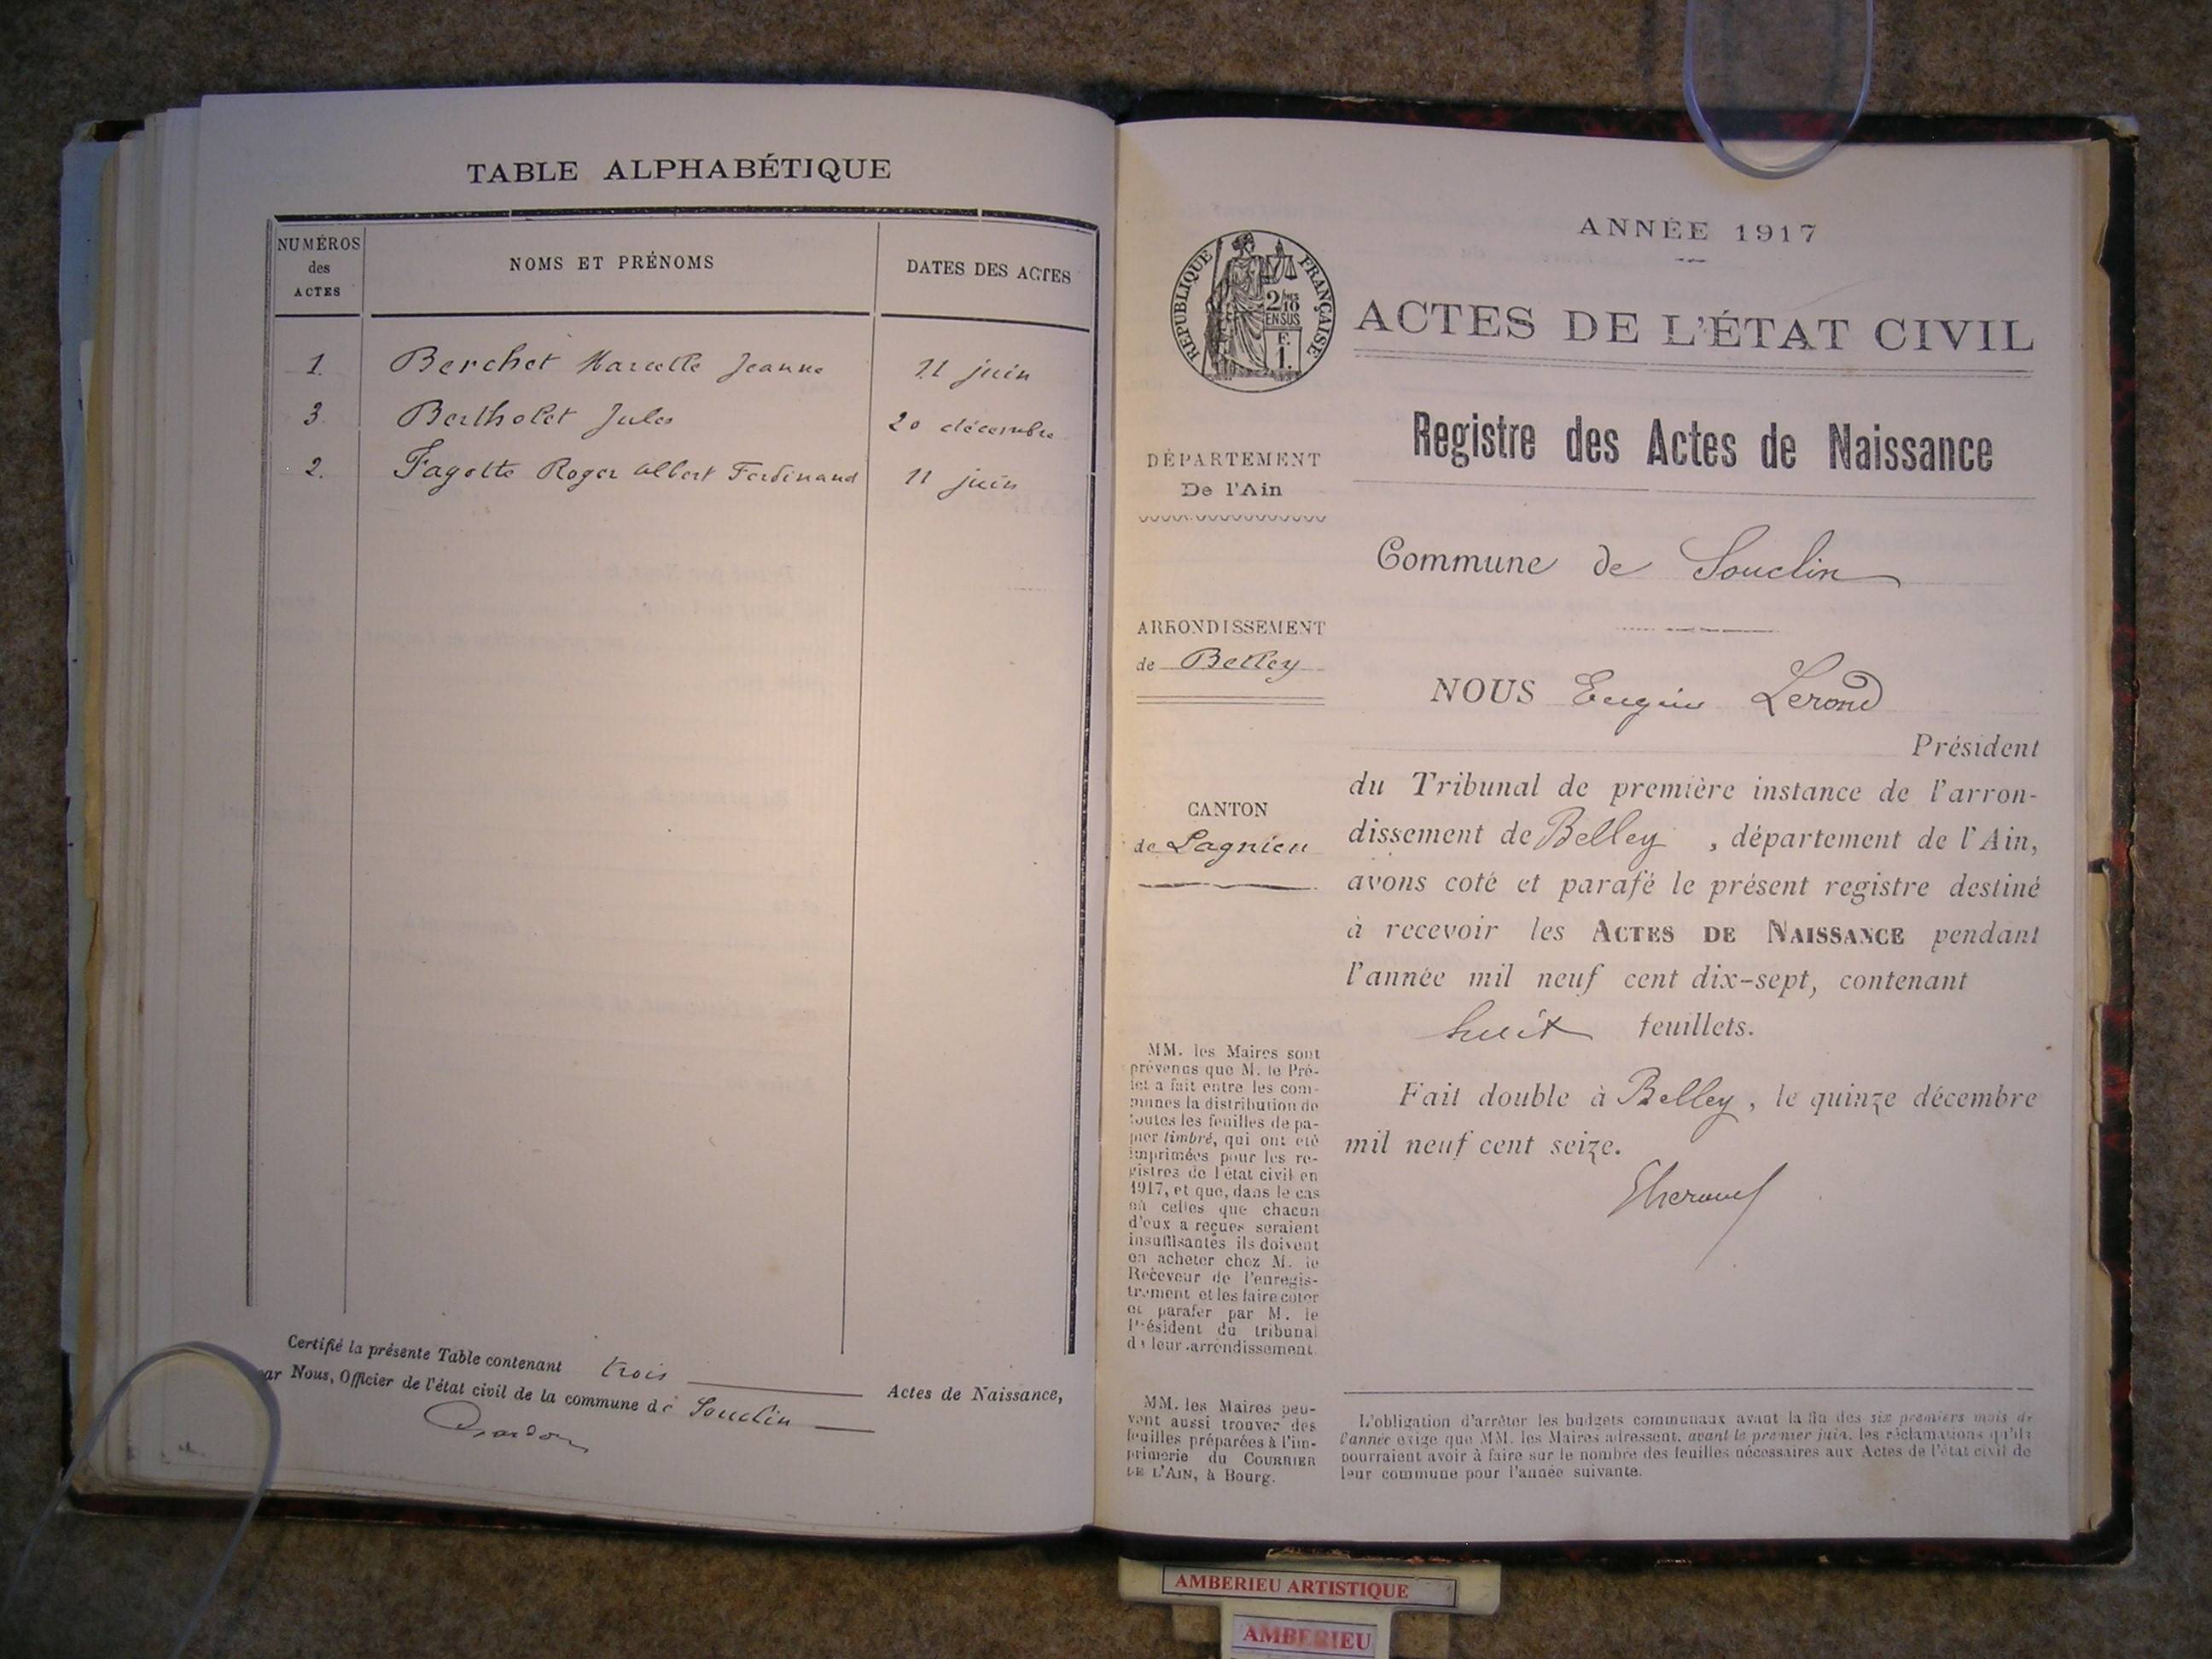 TABLE ALPHABÉTIQUE
NUMÉROS
des
ACTES
NOMS ET PRÉNOMS
DATES DES ACTES
1. Berchet Marcelle Jeanne 11 juin
3. Bertholet Jules 20 décembre
2. Fagotte Roger Albert Ferdinand 11 juin
Certifié la présente Table contenant trois Actes de Naissance,
par Nous, Officier de l'état civil de la commune de Souclin
ANNÉE 1917
RÉPUBLIQUE FRANÇAISE
2/10
EN SUS
F.
1.
ACTES DE L'ÉTAT CIVIL
Registre des Actes de Naissance
DÉPARTEMENT
De l'Ain
Commune de Souclin
ARRONDISSEMENT
de Belley
NOUS Eugène Lerond
Président
du Tribunal de première instance de l'arron-
dissement de Belley , département de l'Ain,
avons coté et parafé le présent registre destiné
à recevoir les ACTES DE NAISSANCE pendant
l'année mil neuf cent dix-sept, contenant
huit feuillets.
Fait double à Belley, le quinze décembre
mil neuf cent seize.
CANTON
de Lagnieu
MM. les Maires sont
prévenus que M. le Pré-
fet a fait entre les com-
munes la distribution de
toutes les feuilles de pa-
pier timbré, qui ont été
imprimées pour les re-
gistres de l'état civil en
1917, et que, dans le cas
où celles que chacun
d'eux a reçues seraient
insuffisantes ils doivent
en acheter chez M. le
Receveur de l'enregis-
trement et les faire coter
et parafer par M. le
Président du tribunal
de leur arrondissement
MM. les Maires peu-
vent aussi trouver des
feuilles préparées à l'im-
primerie du COURRIER
DE L'AIN, à Bourg.
L'obligation d'arrêter les budgets communaux avant la fin des six premiers mois de
l'année exige que MM. les Maires adressent, avant le premier juin, les réclamations qu'ils
pourraient avoir à faire sur le nombre des feuilles nécessaires aux Actes de l'état civil de
leur commune pour l'année suivante.
AMBERIEU ARTISTIQUE
AMBERIEU